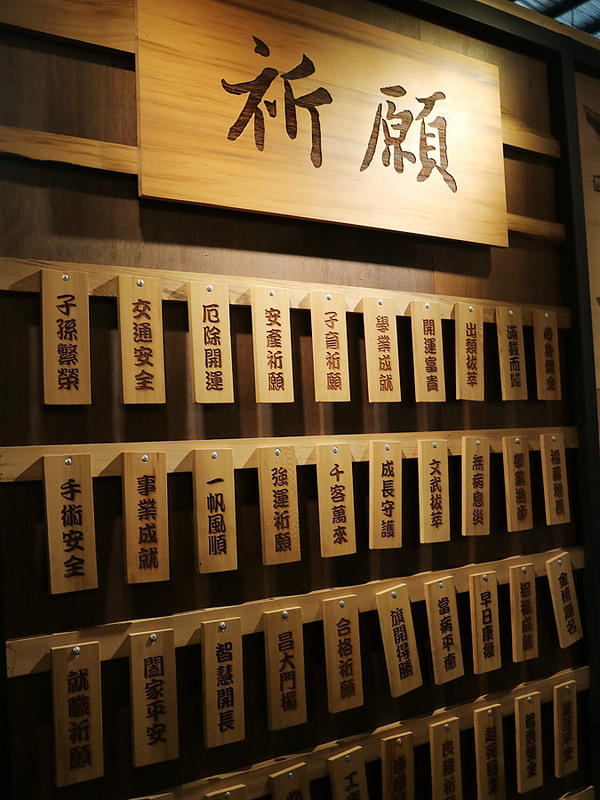 祈願
子孫繁榮
交通安全
厄除開運
安產祈願
子育祈願
學業成就
開運富貴
出類拔萃
滿載而歸
手術安全
事業成就
一帆風順
強運祈願
千客萬來
成長守護
文武拔萃
無病息災
學業進步
福壽增長
就職祈願
闔家平安
智慧開長
昌大門楣
合格祈願
旗開得勝
當病平癒
早日康復
招福成就
金榜題名